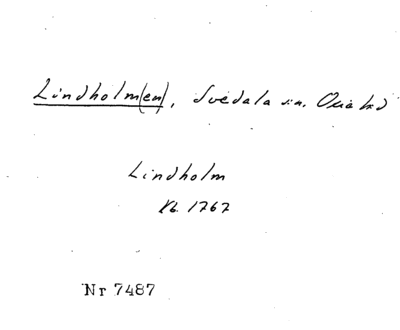 Lindholm(en), Svedala sn. Oxie hd
Lindholm
Kb. 1767
Nr 7487